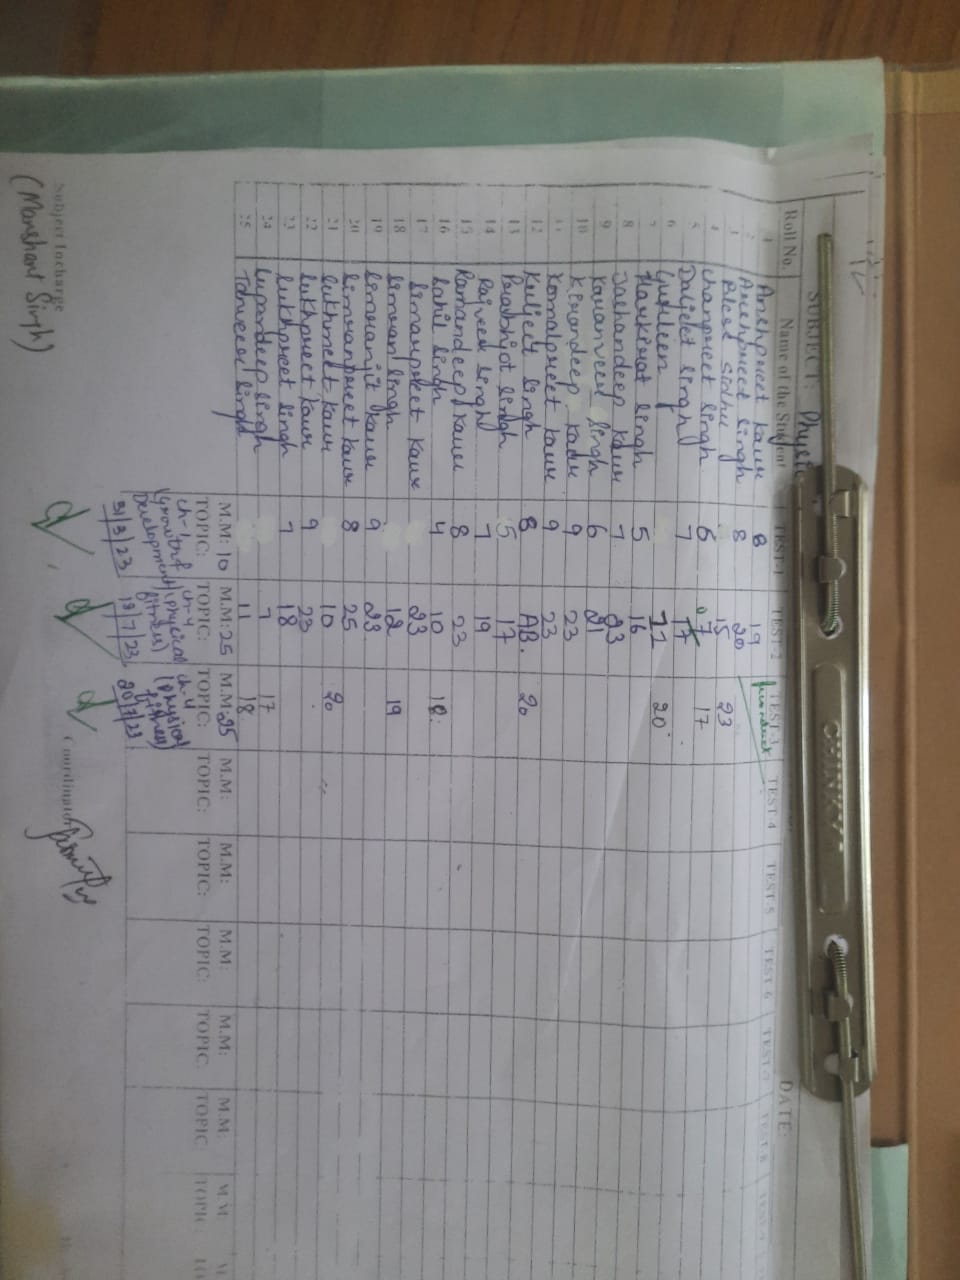 SUBJECT: Physi
DATE:
Roll No. Name of the Student TEST-1 TEST-2 TEST-3 TEST-4 TEST-5 TEST-6 TEST-7 TEST-8
1 Arshpreet Kaur 8 19
2 Arshpreet Singh 8 20
3 Bleet Sidhu 15 23
4 Chanpreet Singh 6 7 17
5 Daljeet Singh 7 17
6 Gurleen 11 20
7 Harkirat Singh 5 16
8 Jashandeep Kaur 7 23
9 Karanveer Singh 6 21
10 Kirandeep Kaur 9 23
11 Komalpreet Kaur 9 23
12 Kuljeet Singh 8 AB. 20
13 Prabhjot Singh 5 17
14 Rajveer Singh 7 19
15 Ramandeep Kaur 8 23
16 Sahil Singh 4 10 18
17 Simarpreet Kaur 23
18 Simran Singh 12 19
19 Simranjit Kaur 9 23
20 Simranpreet Kaur 8 25
21 Sukhmeet Kaur 10 20
22 Sukhpreet Kaur 9 23
23 Sukhpreet Singh 7 18
24 Supandeep Singh 7 17
25 Tanveer Singh 11 18
M.M: 10 M.M: 25 M.M: 25 M.M: M.M: M.M: M.M: M.M: M.M:
TOPIC: TOPIC: TOPIC: TOPIC: TOPIC: TOPIC: TOPIC: TOPIC
Ch-1 (Growth & Development) Ch-4 (Physical fitness) Ch-4 (Physical fitness)
31/3/23 19/7/23 20/7/23
Subject Incharge Coordinator
(Manshant Singh)
CHINKY